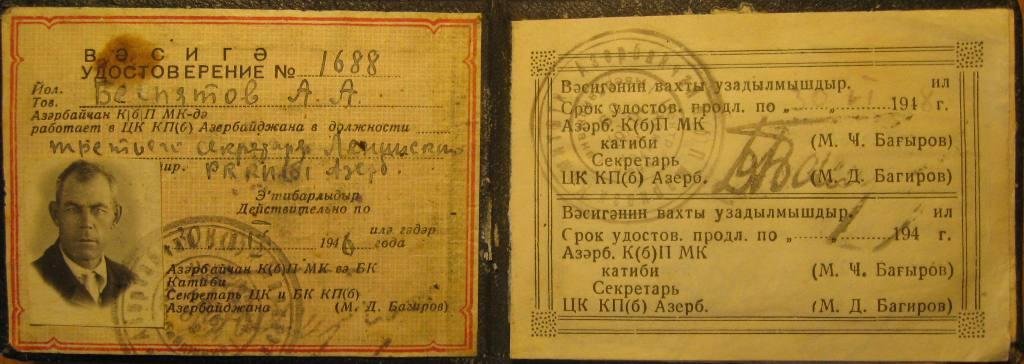 ВӘСИГӘ
УДОСТОВЕРЕНИЕ № 1688
Јол.
Тов. Беспятов А. А.
Азәрбајҹан К(б)П МК-дә
работает в ЦК КП(б) Азербайджана в должности
третьего секретаря Ленинского
РК КП(б) Азерб.
Э'тибарлыдыр
Действительно по
илә гәдәр
1946 года
Азәрбајҹан К(б)П МК вә БК
Катиби
Секретарь ЦК и БК КП(б)
Азербайджана (М. Д. Багиров)
Вәсигәнин вахты узадылмышдыр. ил
Срок удостов. продл. по „ 1948 г.
Азәрб. К(б)П МК
катиби (М. Ҹ. Бағыров)
Секретарь
ЦК КП(б) Азерб. (М. Д. Багиров)
Вәсигәнин вахты узадылмышдыр. ил
Срок удостов. продл. по „ “ 194 г.
Азәрб. К(б)П МК
катиби (М. Ҹ. Бағыров)
Секретарь
ЦК КП(б) Азерб. (М. Д. Багиров)